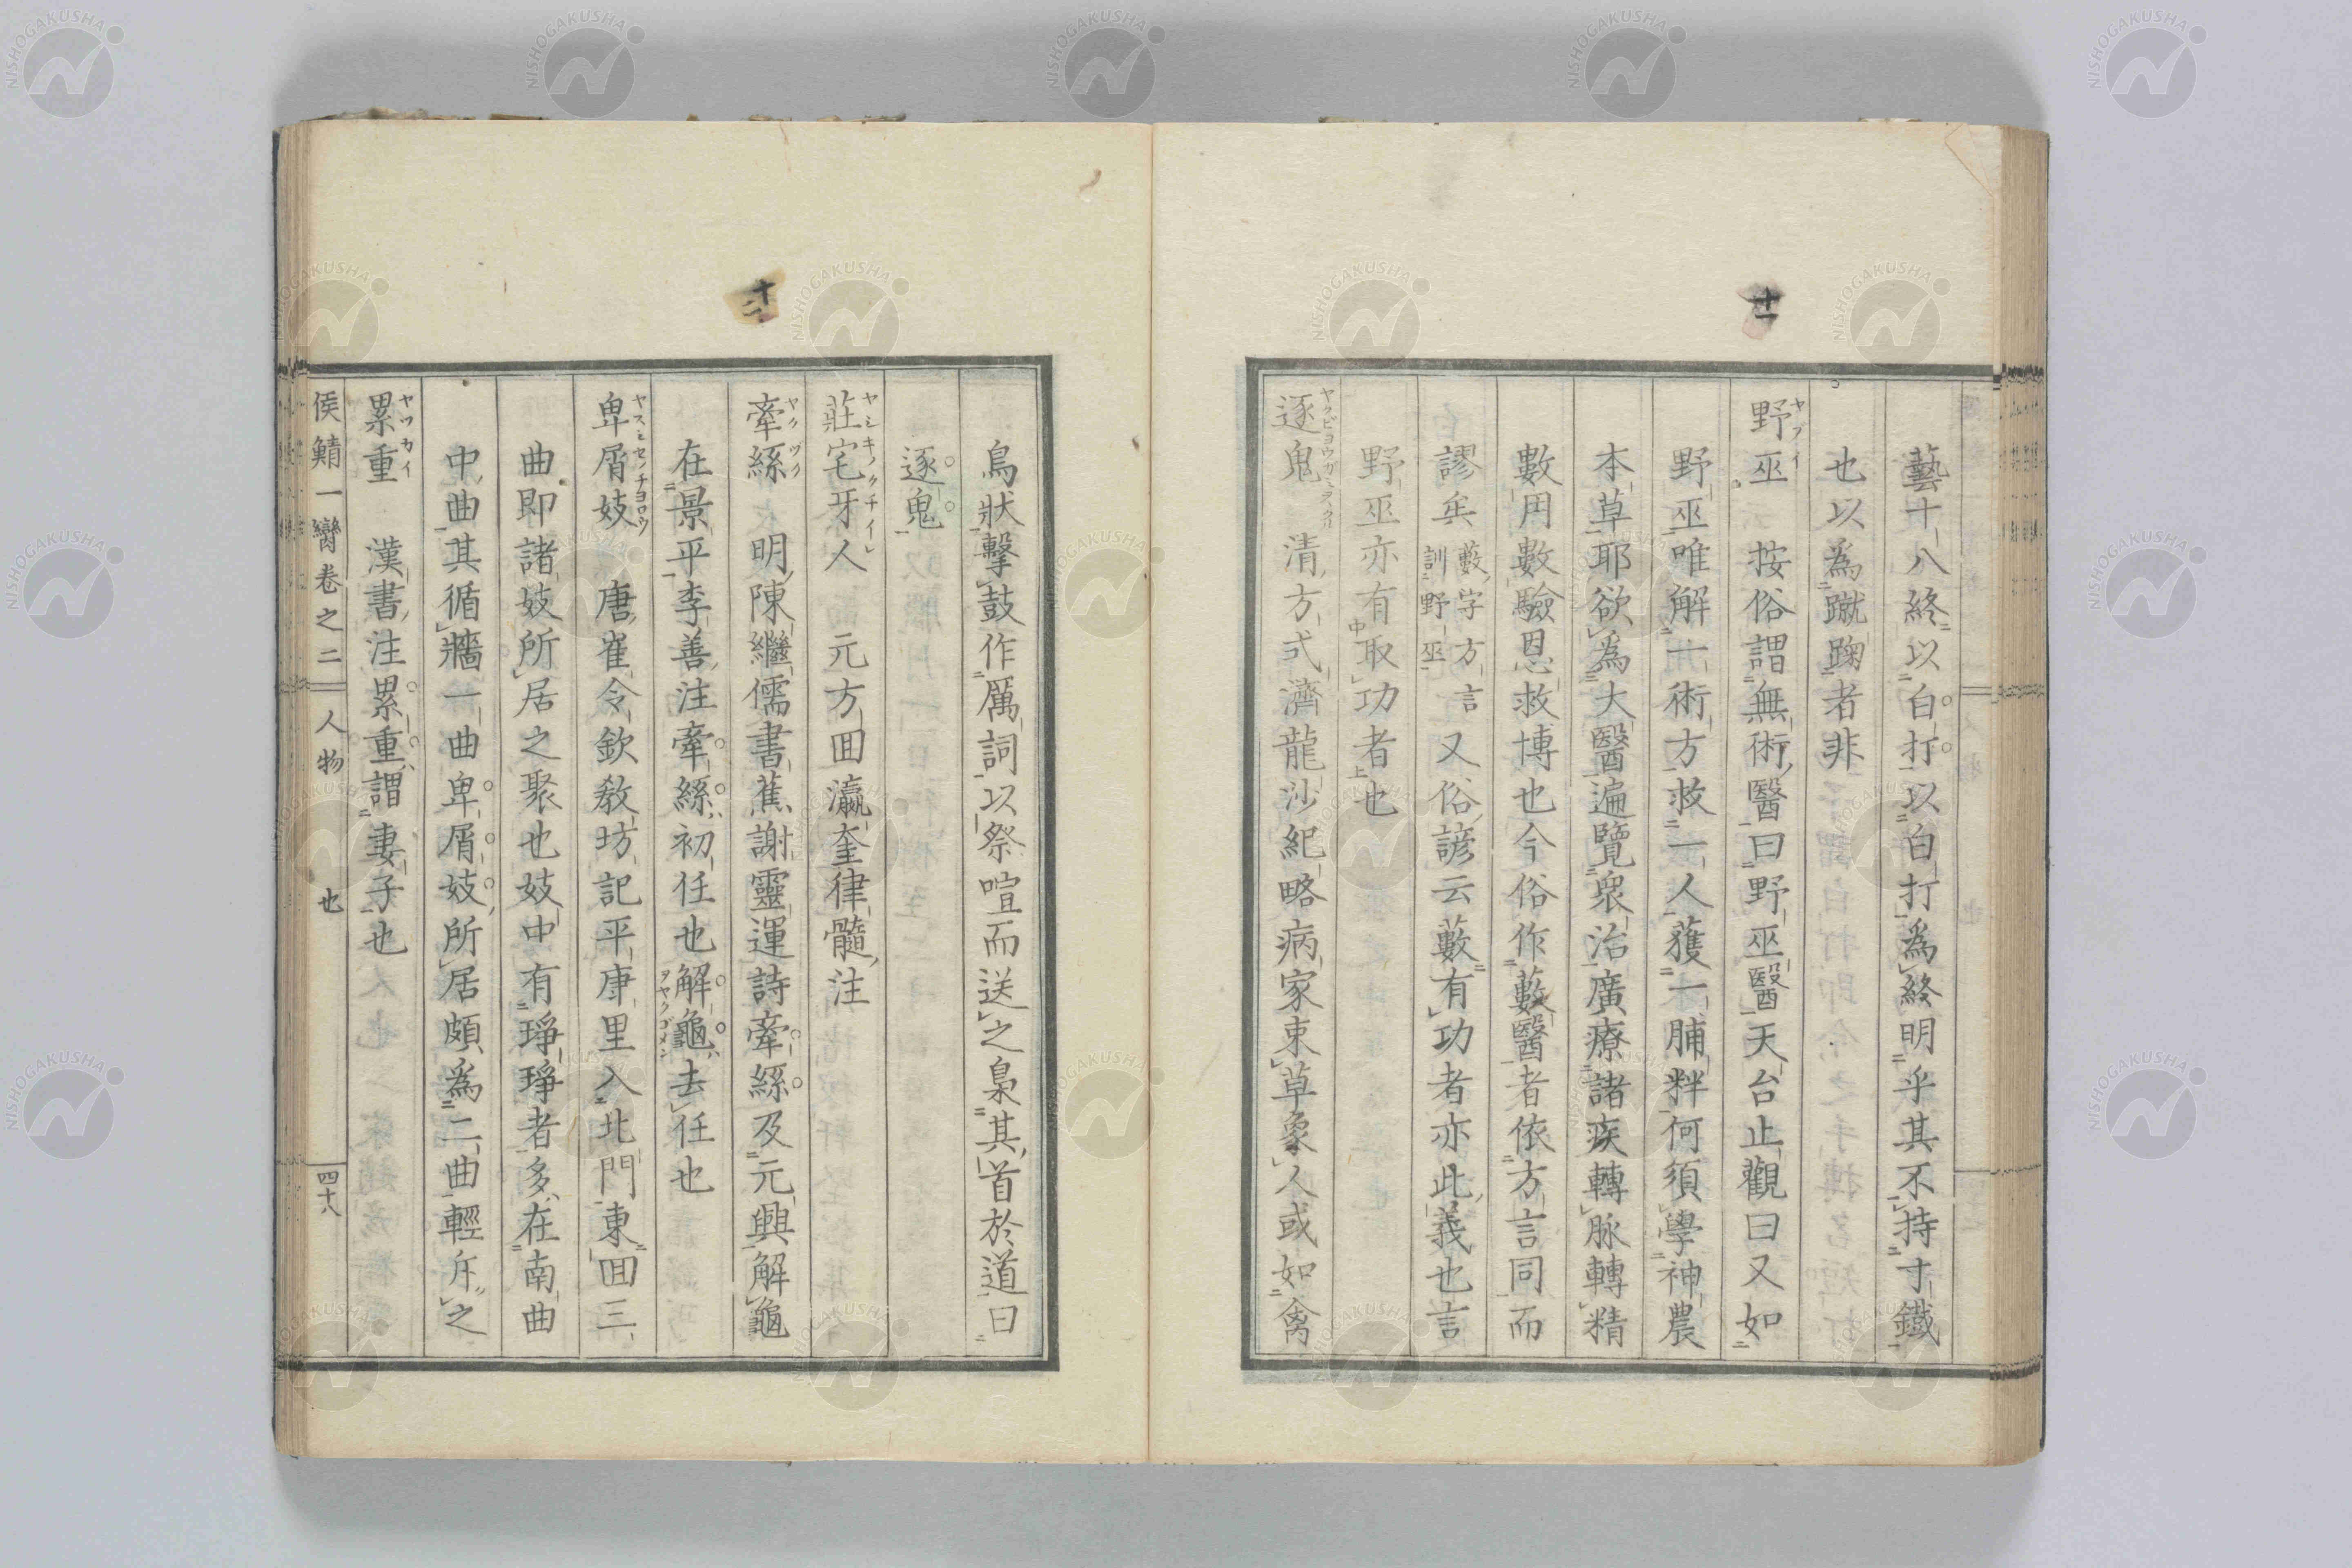 十一
藝十八終以白打以白打為終明乎其不持寸鐵
也以為蹴踘者非
野巫 按俗謂無術醫曰野巫醫天台止觀曰又如
野巫唯解一術方救一人獲一脯柈何須學神農
本草耶欲為大醫遍覽衆治廣療諸疾轉脉轉精
數用數驗恩救博也今俗作藪醫者依方言同而
謬矣 藪字方言訓野巫 又俗諺云藪有功者亦此義也言
野巫亦有取功者也
逐鬼 清方式濟龍沙紀略病家束草象人或如禽
十二
鳥狀擊鼓作厲詞以祭喧而送之梟其首於道曰
逐鬼
莊宅牙人 元方回瀛奎律髓注
牽絲 明陳繼儒書蕉謝靈運詩牽絲及元興解龜
在景平李善注牽絲初任也解龜去任也
卑屑妓 唐崔令欽敎坊記平康里入北門東回三
曲即諸妓所居之聚也妓中有琤琤者多在南曲
中曲其循牆一曲卑屑妓所居頗為二曲輕斥之
累重 漢書注累重謂妻子也
侯鯖一臠卷之二 人物 也 四十八
NISHOGAKUSHA